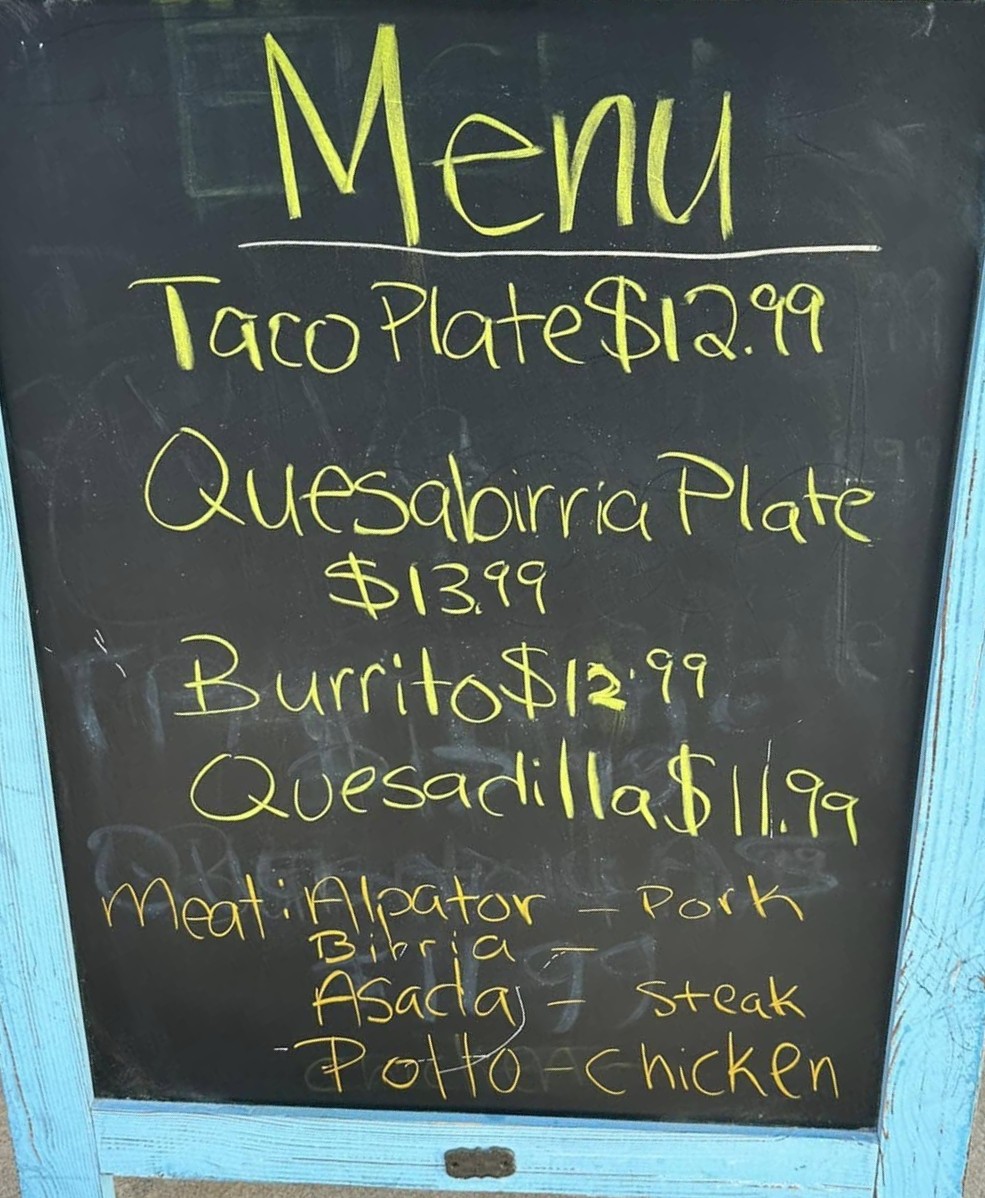 Menu
Taco Plate $12.99
Quesabirria Plate
$13.99
Burrito $12.99
Quesadilla $11.99
Meat: Alpator - Pork
Birria -
Asada - Steak
Potto - chicken